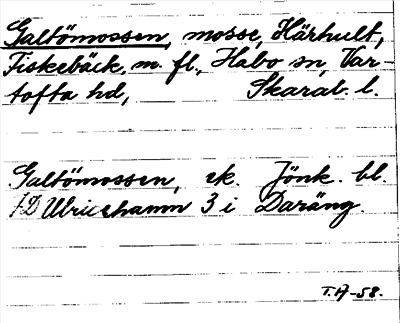 Galtömossen, mosse, Härhult,
Fiskebäck, m. fl., Habo sn, Var-
tofta hd, Skarab. l.
Galtömossen, ek. Jönk. bl.
1D Ulricehamn 3 i Daräng.
T.A-58.